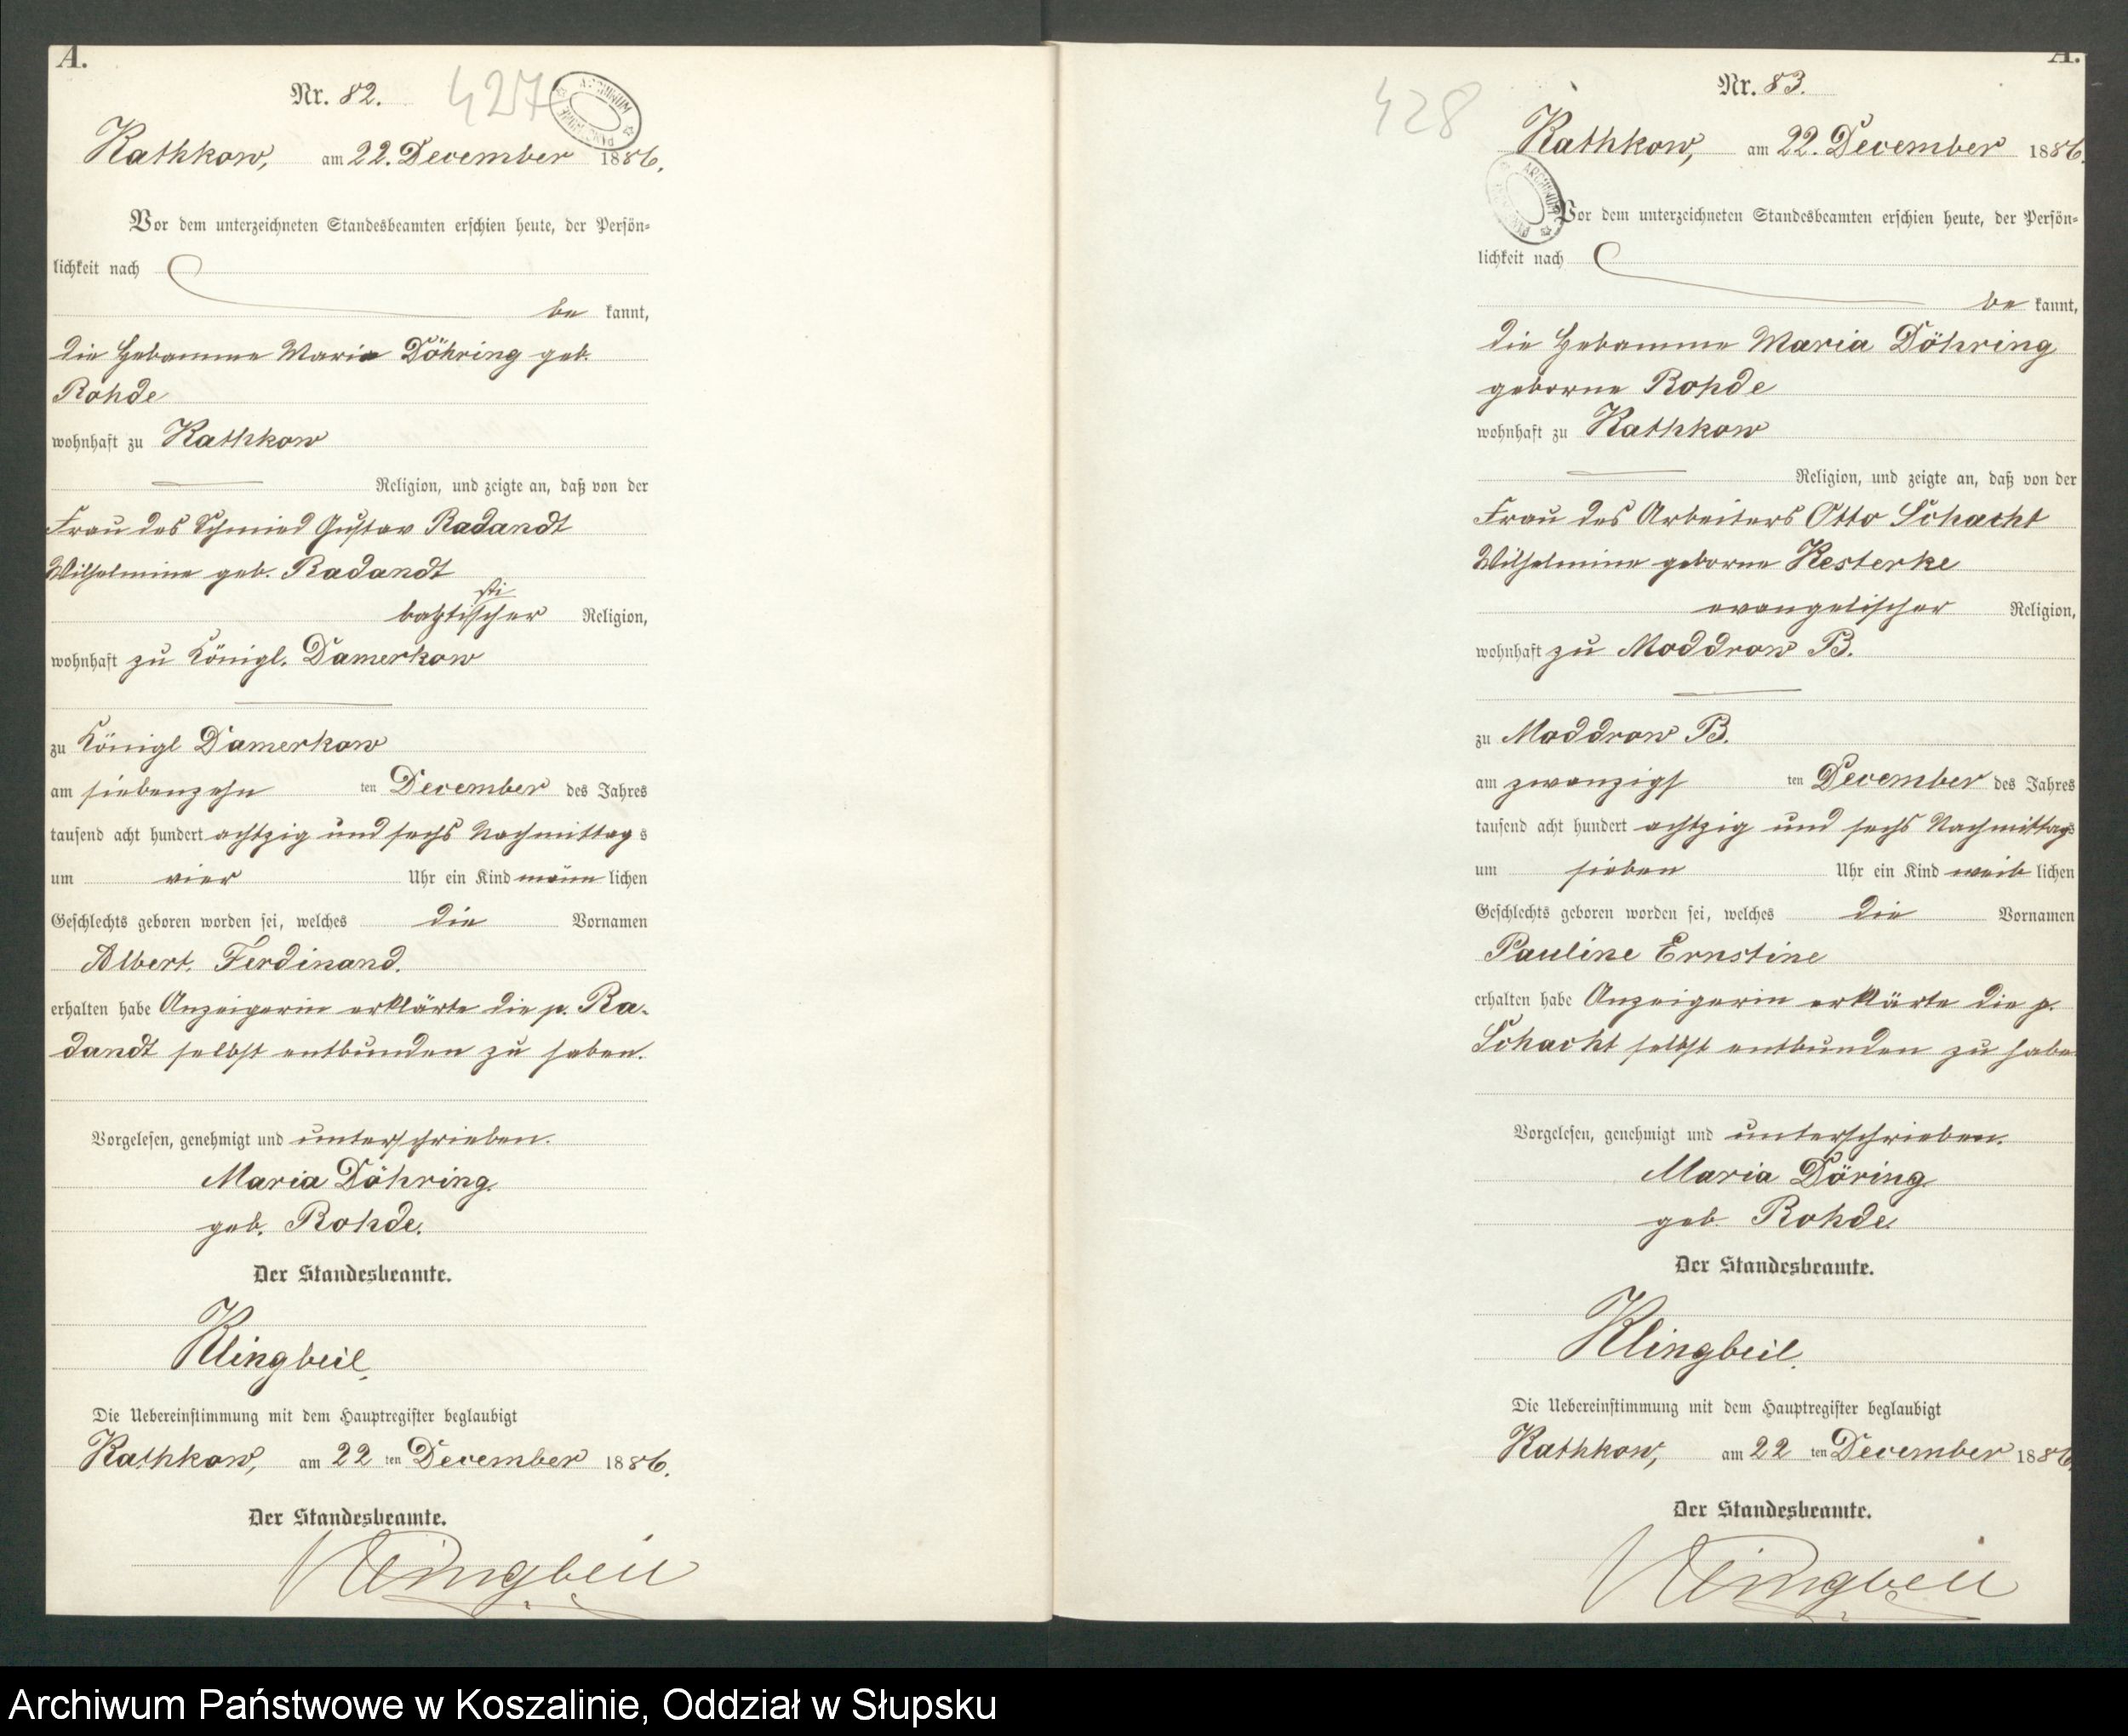 A.
Nr. 82.
427
ARCHIWUM PAŃSTWOWE
Rathkow, am 22. December 1886.
Vor dem unterzeichneten Standesbeamten erschien heute, der Persön-
lichkeit nach
be kannt,
die Hebamme Maria Döhring geb.
Rohde
wohnhaft zu Rathkow
Religion, und zeigte an, daß von der
Frau des Schmied Gustav Radandt
Wilhelmine geb. Radandt
sti
baptischer Religion,
wohnhaft zu Königl. Damerkow
zu Königl Damerkow
am siebenzehn ten December des Jahres
tausend acht hundert achtzig und sechs Nachmittag s
um vier Uhr ein Kind männ lichen
Geschlechts geboren worden sei, welches die Vornamen
Albert. Ferdinand.
erhalten habe Anzeigerin erklärte die p. Ra-
dandt selbst entbunden zu haben.
Vorgelesen, genehmigt und unterschrieben.
Maria Döhring.
geb. Rohde.
Der Standesbeamte.
Klingbeil.
Die Uebereinstimmung mit dem Hauptregister beglaubigt
Rathkow, am 22 ten December 1886.
Der Standesbeamte.
Klingbeil
A.
Nr. 83.
428
Rathkow, am 22. December 1886.
ARCHIWUM
Vor dem unterzeichneten Standesbeamten erschien heute, der Persön-
lichkeit nach
be kannt,
die Hebamme Maria Döhring
geborne Rohde
wohnhaft zu Rathkow
Religion, und zeigte an, daß von der
Frau des Arbeiters Otto Schacht
Wilhelmine geborne Kesterke
evangelischer Religion,
wohnhaft zu Moddrow B.
zu Moddrow B.
am zwanzigs ten December des Jahres
tausend acht hundert achtzig und sechs Nachmittags
um sieben Uhr ein Kind weib lichen
Geschlechts geboren worden sei, welches die Vornamen
Pauline Ernstine
erhalten habe Anzeigerin erklärte die p.
Schacht selbst entbunden zu habe
Vorgelesen, genehmigt und unterschrieben.
Maria Döring
geb Rohde.
Der Standesbeamte.
Klingbeil.
Die Uebereinstimmung mit dem Hauptregister beglaubigt
Rathkow, am 22 ten December 1886.
Der Standesbeamte.
Klingbeil
Archiwum Państwowe w Koszalinie, Oddział w Słupsku